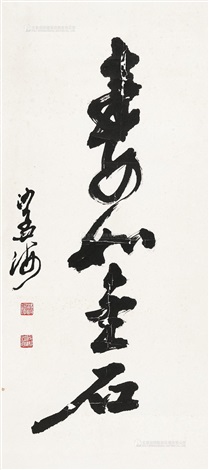 寿如金石
沙孟海